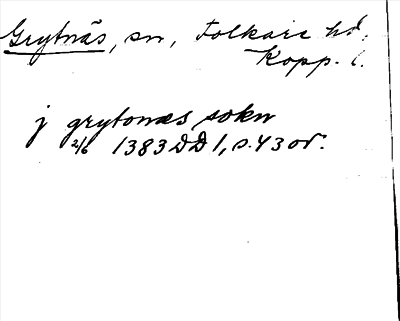 Grytnäs, sn, Folkare hd,
Kopp. l.
j grytonæs sokn
2/6 1383 DD 1, s. 43 or.